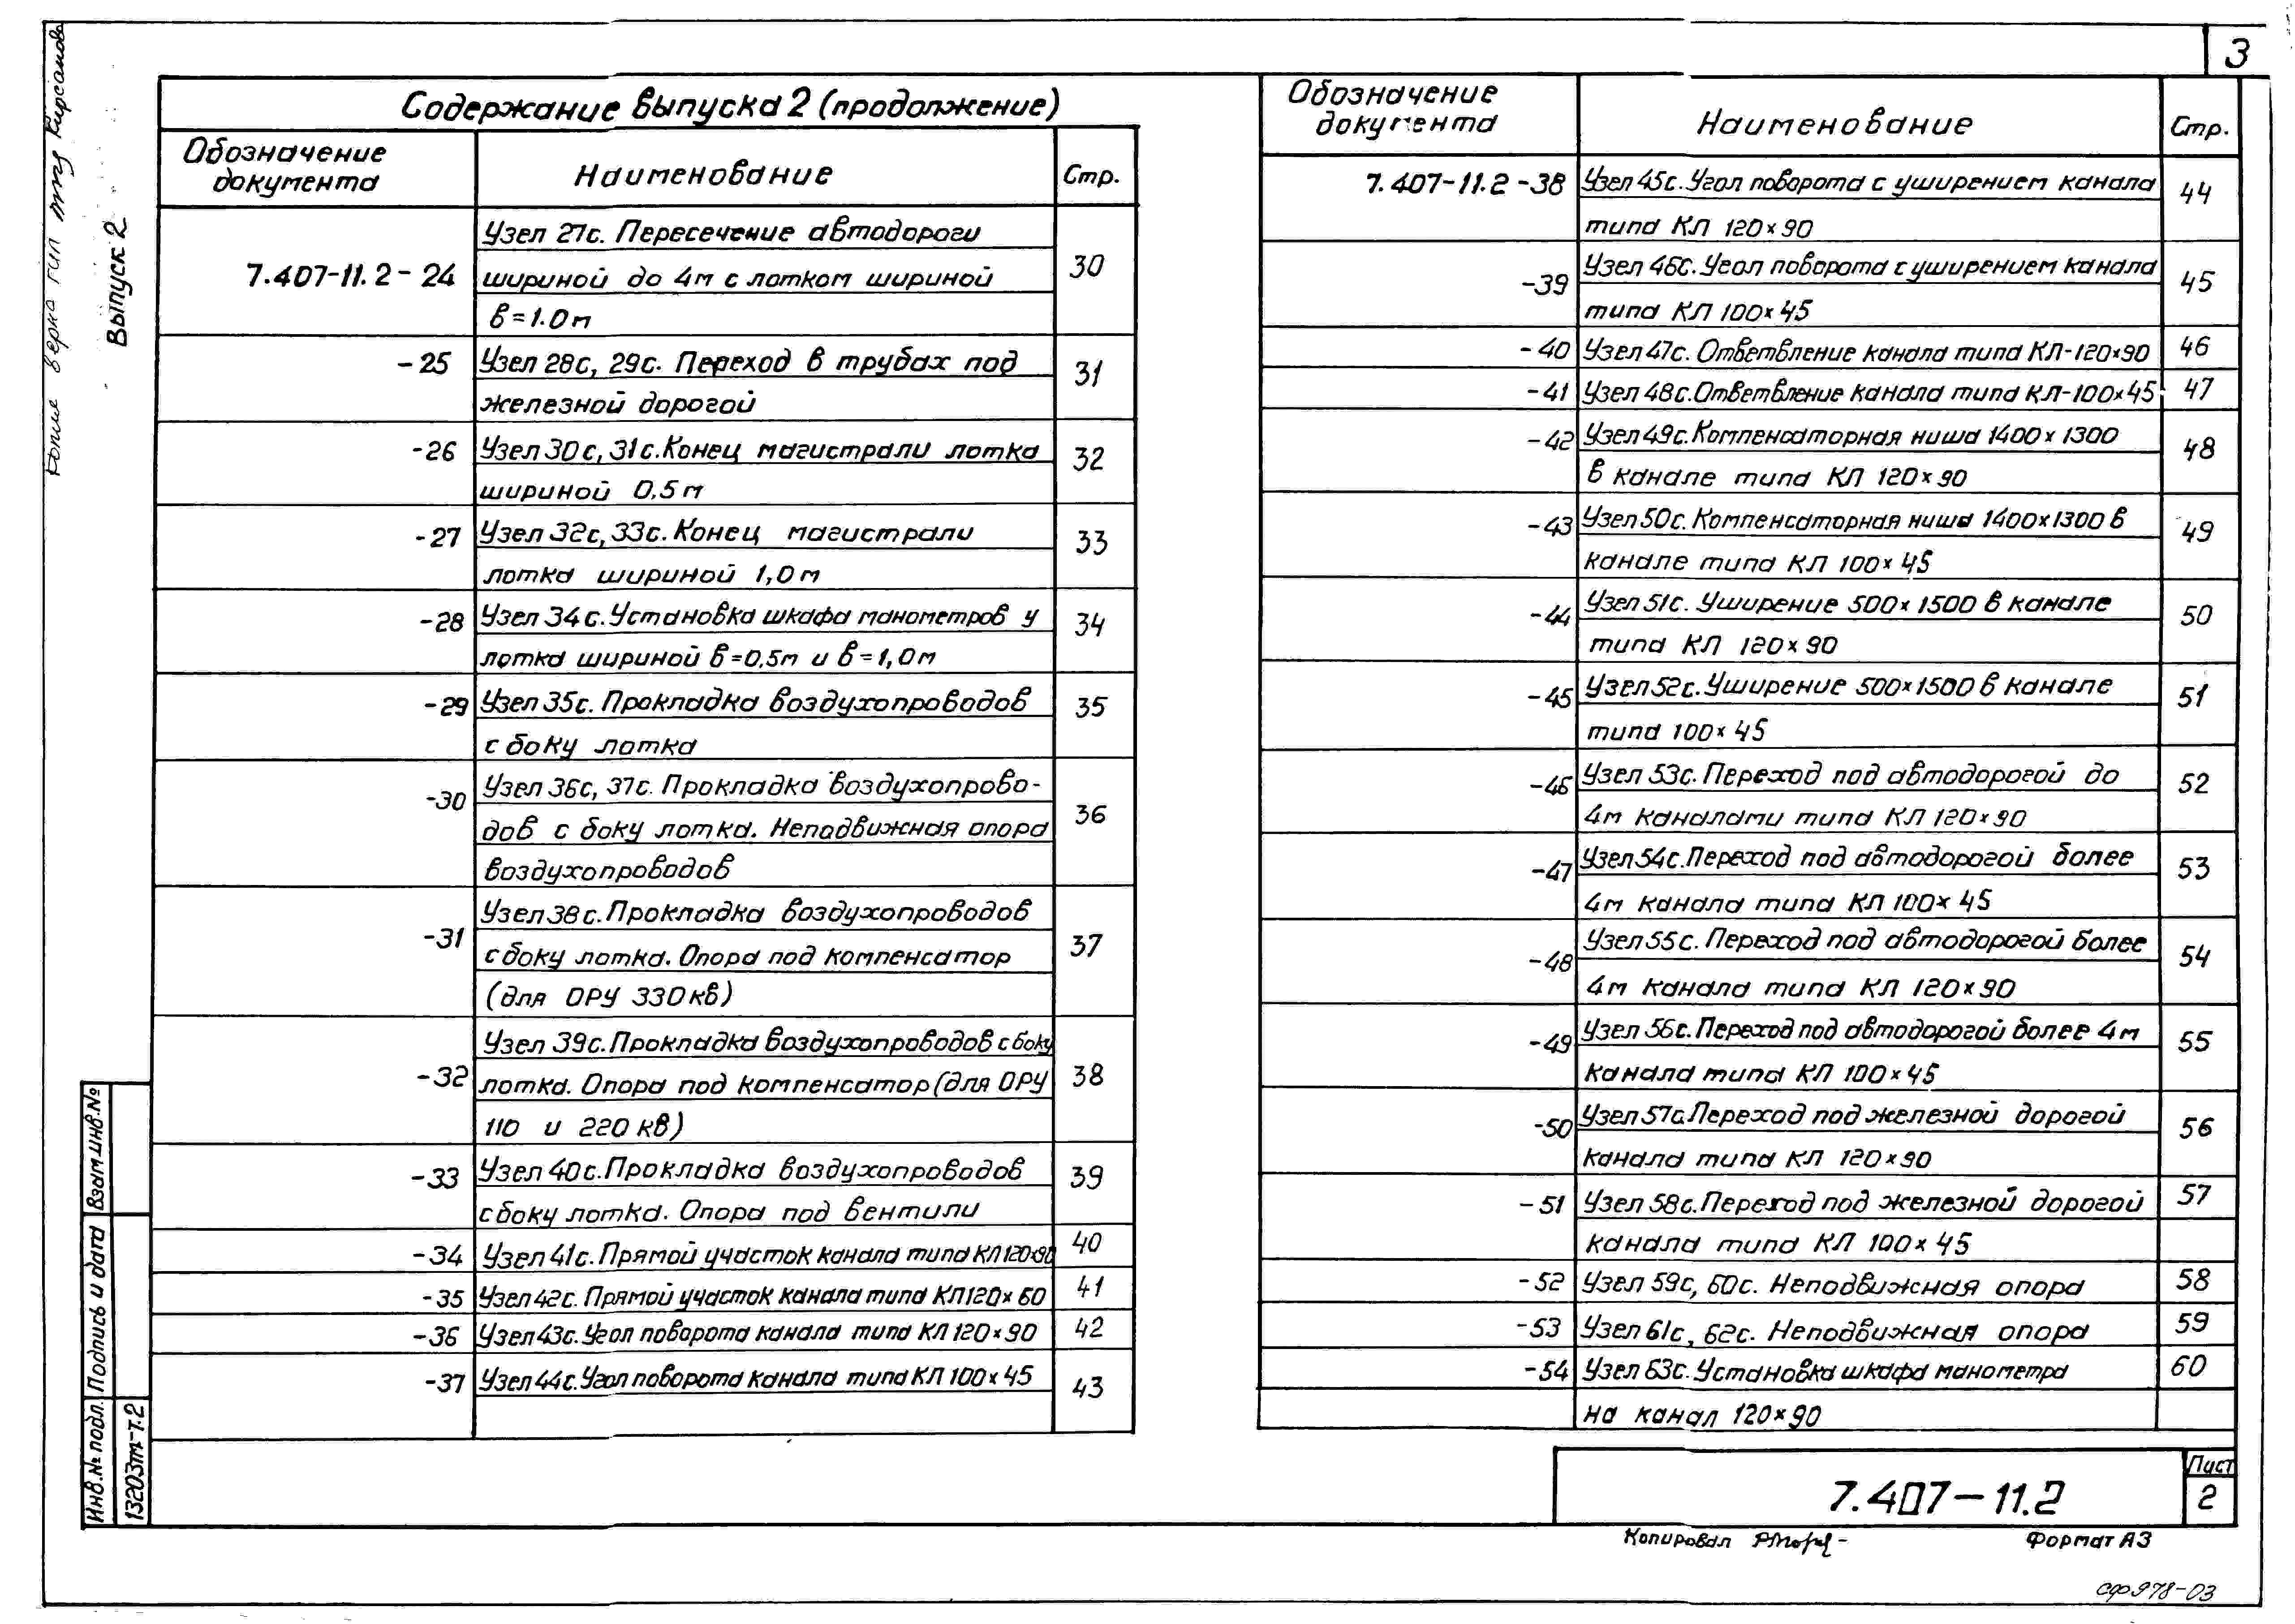 3
Содержание выпуска 2 (продолжение)
Обозначение документа
Наименование
Стр.
7.407-11.2-24
Узел 27с. Пересечение автодороги
шириной до 4м с лотком шириной
в=1.0м
30
-25
Узел 28с, 29с. Переход в трубах под
железной дорогой
31
-26
Узел 30с, 31с. Конец магистрали лотка
шириной 0,5м
32
-27
Узел 32с, 33с. Конец магистрали
лотка шириной 1,0м
33
-28
Узел 34с. Установка шкафа манометров у
лотка шириной в=0,5м и в=1,0м
34
-29
Узел 35с. Прокладка воздухопроводов
с боку лотка
35
-30
Узел 36с, 37с. Прокладка воздухопрово-
дов с боку лотка. Неподвижная опора
воздухопроводов
36
-31
Узел 38с. Прокладка воздухопроводов
с боку лотка. Опора под компенсатор
(для ОРУ 330кв)
37
-32
Узел 39с. Прокладка воздухопроводов с боку
лотка. Опора под компенсатор (для ОРУ
110 и 220кв)
38
-33
Узел 40с. Прокладка воздухопроводов
с боку лотка. Опора под вентили
39
-34
Узел 41с. Прямой участок канала типа КЛ120×90
40
-35
Узел 42с. Прямой участок канала типа КЛ120×60
41
-36
Узел 43с. Угол поворота канала типа КЛ 120×90
42
-37
Узел 44с. Угол поворота канала типа КЛ 100×45
43
Обозначение документа
Наименование
Стр.
7.407-11.2-38
Узел 45с. Угол поворота с уширением канала
типа КЛ 120×90
44
-39
Узел 46с. Угол поворота с уширением канала
типа КЛ 100×45
45
-40
Узел 47с. Ответвление канала типа КЛ-120×90
46
-41
Узел 48с. Ответвление канала типа КЛ-100×45
47
-42
Узел 49с. Компенсаторная ниша 1400×1300
в канале типа КЛ 120×90
48
-43
Узел 50с. Компенсаторная ниша 1400×1300 в
канале типа КЛ 100×45
49
-44
Узел 51с. Уширение 500×1500 в канале
типа КЛ 120×90
50
-45
Узел 52с. Уширение 500×1500 в канале
типа 100×45
51
-46
Узел 53с. Переход под автодорогой до
4м каналами типа КЛ 120×90
52
-47
Узел 54с. Переход под автодорогой более
4м канала типа КЛ 100×45
53
-48
Узел 55с. Переход под автодорогой более
4м канала типа КЛ 120×90
54
-49
Узел 56с. Переход под автодорогой более 4м
канала типа КЛ 100×45
55
-50
Узел 57с. Переход под железной дорогой
канала типа КЛ 120×90
56
-51
Узел 58с. Переход под железной дорогой
канала типа КЛ 100×45
57
-52
Узел 59с, 60с. Неподвижная опора
58
-53
Узел 61с, 62с. Неподвижная опора
59
-54
Узел 63с. Установка шкафа манометра
на канал 120×90
60
7.407-11.2
Лист
2
Копировал
Формат А3
сф978-03
Выпуск 2
Копия верна гип Кирсанова
Взам инв.№
Подпись и дата
Инв.№ подл.
13203тм-т.2